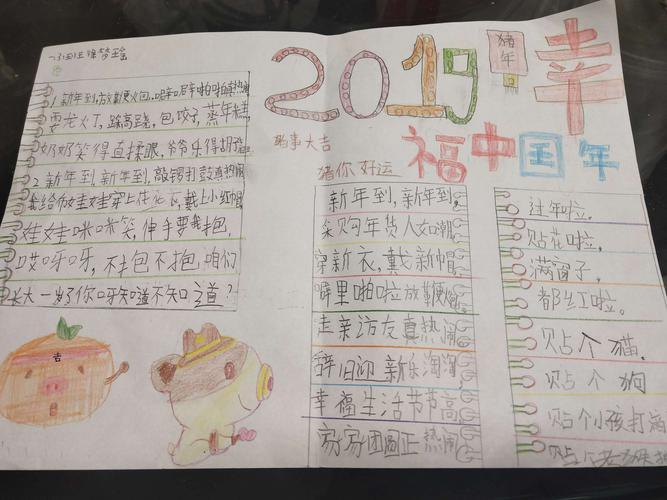 2019
猪年
幸
福中国年
诸事大吉
猪你好运
1 新年到,放鞭炮
耍龙灯,踩高跷,包饺子,蒸年糕
奶奶笑得直揉眼,爷爷乐得胡
2 新年到,新年到,敲锣打鼓真热闹
我给布娃娃穿上花衣,戴上小红帽
娃娃咪咪笑,伸手要我抱,
哎呀呀,不抱不抱,咱们
长大一岁了你呀知道不知道?
吉
新年到,新年到,
采购年货人如潮,
穿新衣,戴新帽
噼里啪啦放鞭炮
走亲访友真热闹
辞旧迎新乐淘淘
幸福生活节节高
家家团圆正热闹
过年啦,
贴花啦,
满窗子,
都红啦。
贴个猫,
贴个狗
贴个小孩打
贴个